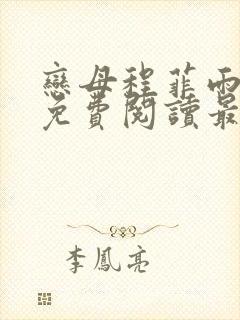 戀母程菲雨
免費閱讀最
李鳳亮